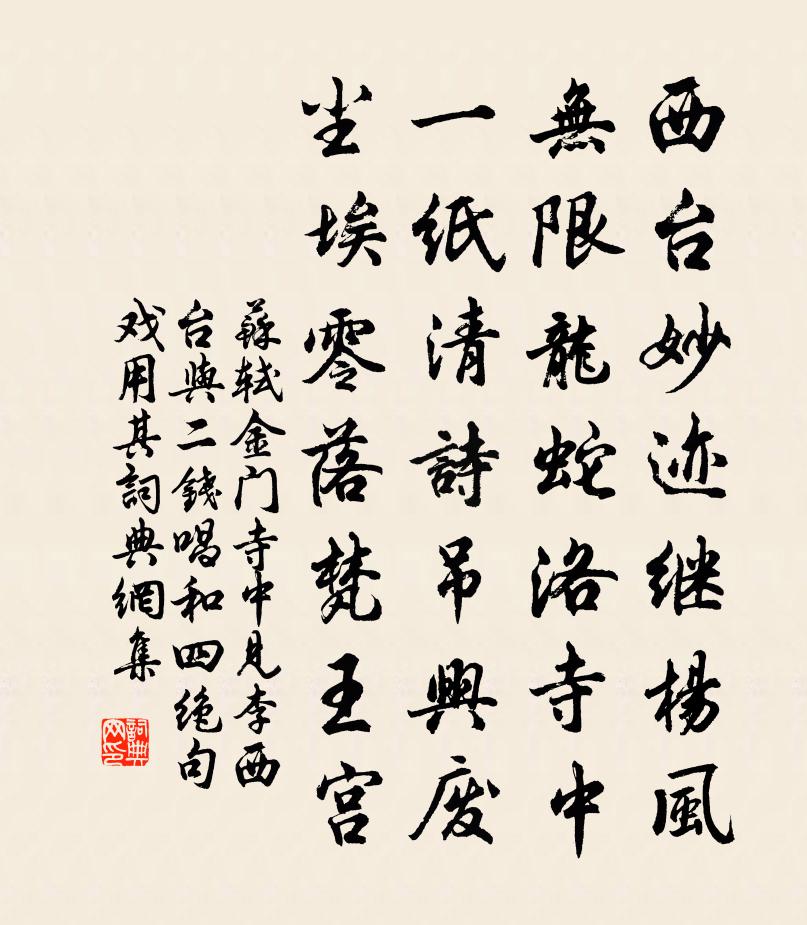 西台妙迹继楊風
無限龍蛇洛寺中
一紙清詩吊興废
尘埃零落梵王宫
蘇轼金门寺中見李西
台與二錢唱和四绝句
戏用其詞典網集
詞典
网印